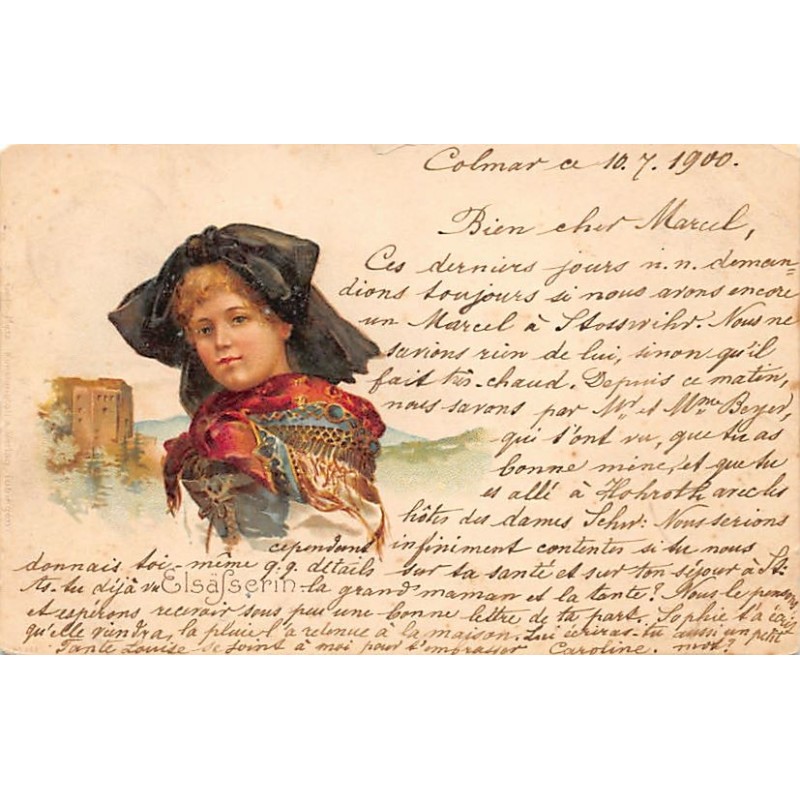 Colmar ce 10.7.1900.
Bien cher Marcel,
Ces derniers jours n.n. deman=
dions toujours si nous avons encore
un Marcel à Stosswihr. Nous ne
savions rien de lui, sinon qu'il
fait très-chaud. Depuis ce matin,
nous savons par Mr et Mme Beyer,
qui t'ont vu, que tu as
bonne mine, et que tu
es allé à Hohroth avec les
hôtes des dames Schw: Nous serions
cependant infiniment contentes si tu nous
donnais toi-même q.q. détails sur ta santé et sur ton séjour à St:
As-tu déjà vu la grand'maman et la tante? Nous le pensons
et espérons recevoir sous peu une bonne lettre de ta part. Sophie t'a écrit
qu'elle viendra, la pluie l'a retenue à la maison. Lui écriras-tu aussi un petit
mot?
Tante Louise se joint à moi pour t'embrasser Caroline.
Elsässerin